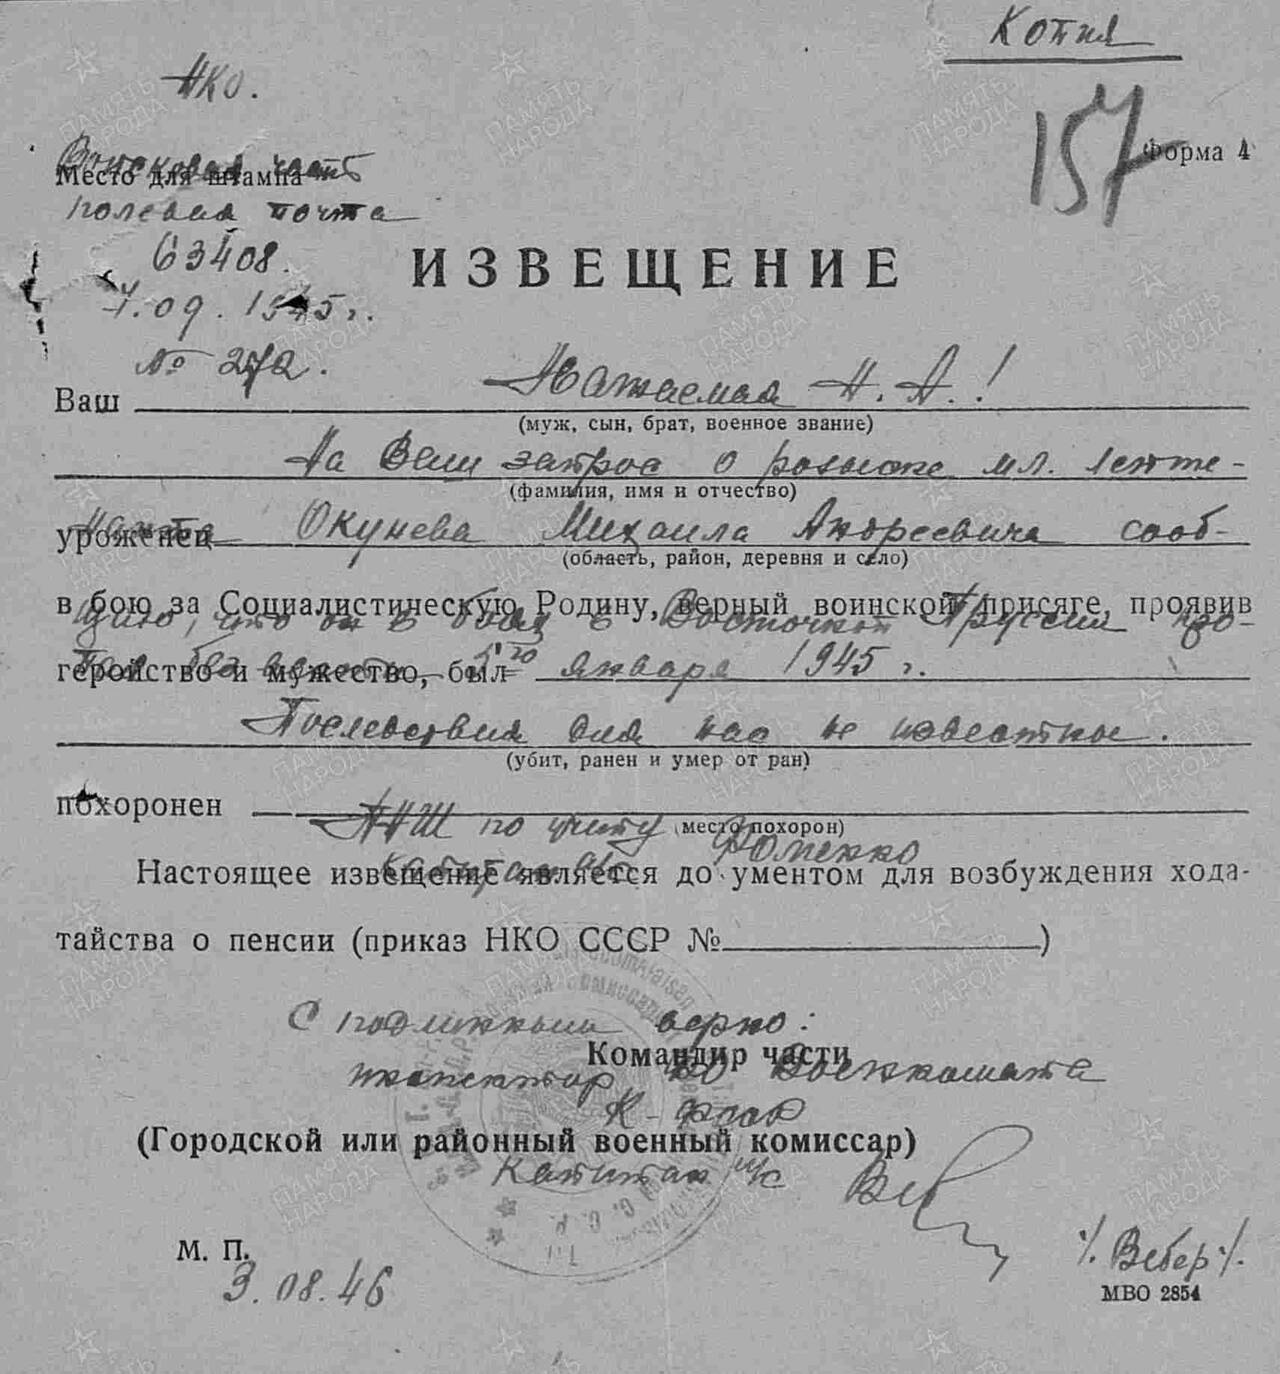 Копия
НКО.
157
Форма 4
Войсковая часть
Место для штампа
полевая почта
63408.
7.09.1945 г.
№ 272.
ИЗВЕЩЕНИЕ
Ваш Уважаемая Н. А.!
(муж, сын, брат, военное звание)
На Ваш запрос о розыске мл. лейте-
(фамилия, имя и отчество)
уроженец
нанта Окунева Михаила Андреевича сооб-
(область, район, деревня и село)
в бою за Социалистическую Родину, верный воинской присяге, проявив
щаю, что он в боях в Восточной Пруссии про-
геройство и мужество, был
пал без вести января 1945 г.
Последствия для нас не известны.
(убит, ранен и умер от ран)
похоронен
(место похорон)
ПНШ по учету
капитан Фоменко
Настоящее извещение является до ументом для возбуждения хода-
тайства о пенсии (приказ НКО СССР №)
С подлинным верно:
Командир части
инспектор Военкомата
(Городской или районный военный комиссар)
Капитан
М. П.
3.08.46
/Вебер/.
МВО 2854
ПАМЯТЬ НАРОДА